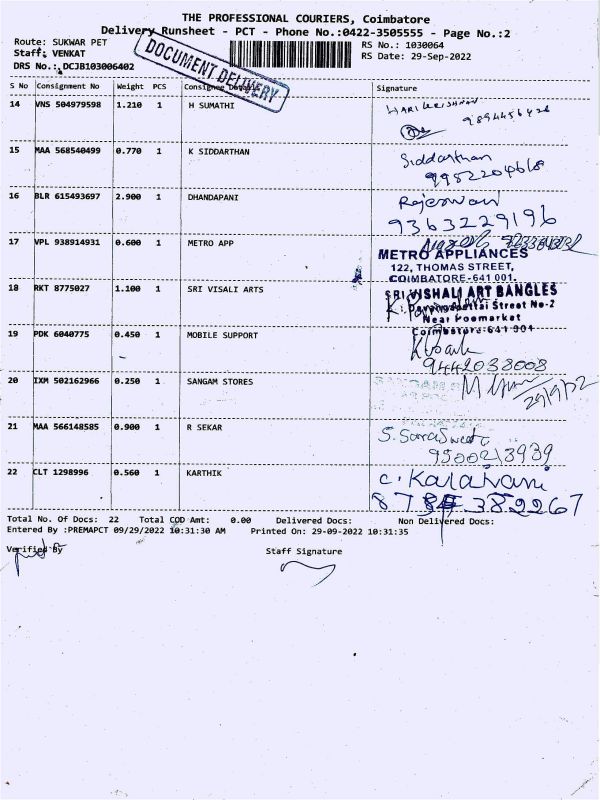 THE PROFESSIONAL COURIERS, Coimbatore
Delivery Runsheet - PCT - Phone No.:0422-3505555 - Page No.:2
Route: SUKWAR PET
RS No.: 1030064
Staff: VENKAT
RS Date: 29-Sep-2022
DRS No.: DCJB103006402
DOCUMENT DELIVERY
S No Consignment No Weight PCS Consignee Details Signature
14 VNS 504979598 1.210 1 H SUMATHI
HARIKRISHNAN
9894456426
15 MAA 568540499 0.770 1 K SIDDARTHAN
Siddarthan
16 BLR 615493697 2.900 1 DHANDAPANI
Rajeswari
9363229196
17 VPL 938914931 0.600 1 METRO APP
METRO APPLIANCES
122, THOMAS STREET,
COIMBATORE-641 001.
18 RKT 8775027 1.100 1 SRI VISALI ARTS
SRI VISHALI ART BANGLES
Street No-2
Near Poomarket
Coimbatore-641 001
19 PDK 6040775 0.450 1 MOBILE SUPPORT
9442038008
20 IXM 502162966 0.250 1 SANGAM STORES
29/9/22
21 MAA 566148585 0.900 1 R SEKAR
9500213939
22 CLT 1298996 0.560 1 KARTHIK
C. Kalaivani
Total No. Of Docs: 22 Total COD Amt: 0.00 Delivered Docs: Non Delivered Docs:
Entered By :PREMAPCT 09/29/2022 10:31:30 AM Printed On: 29-09-2022 10:31:35
Verified By Staff Signature